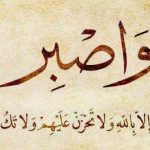 وَاصْبِر
إِلَّا بِاللَّهِ وَلَا تَحْزَنْ عَلَيْهِمْ وَلَا تَكُ